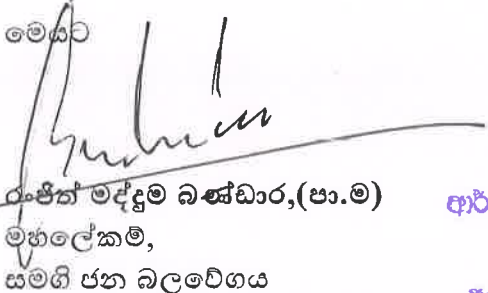 මෙයට
රංජිත් මද්දුම බණ්ඩාර,(පා.ම)
මහලේකම්,
සමගි ජන බලවේගය